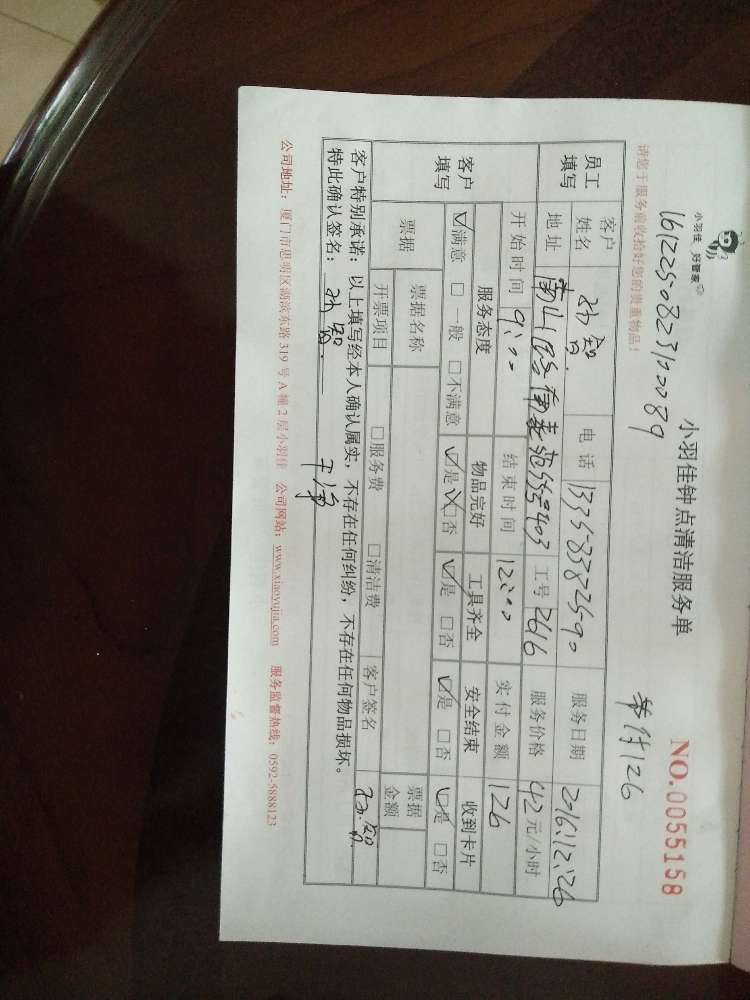 小羽佳 好管家
小羽佳钟点清洁服务单
NO.0055158
1612250823100089
请您于服务前收拾好您的贵重物品！
126
员工填写
客户姓名
电话 1335-8382590
服务日期 2016.12.26
地址
工号 2616
服务价格 42元/小时
开始时间 9:00
结束时间 12:00
实付金额 126
客户填写
服务态度 物品完好 工具齐全 安全结束 收到卡片
☑满意 □一般 □不满意 ☑是 □否 ☑是 □否 ☑是 □否 ☑是 □否
票据
票据名称
票据金额
开票项目 □服务费 □清洁费 客户签名
客户特别承诺：以上填写经本人确认属实，不存在任何纠纷，不存在任何物品损坏。
特此确认签名：
干净
公司地址：厦门市思明区湖滨东路 319 号 A 幢 2 层小羽佳 公司网站：www.xiaoyujia.com 服务监督热线：0592-5888123